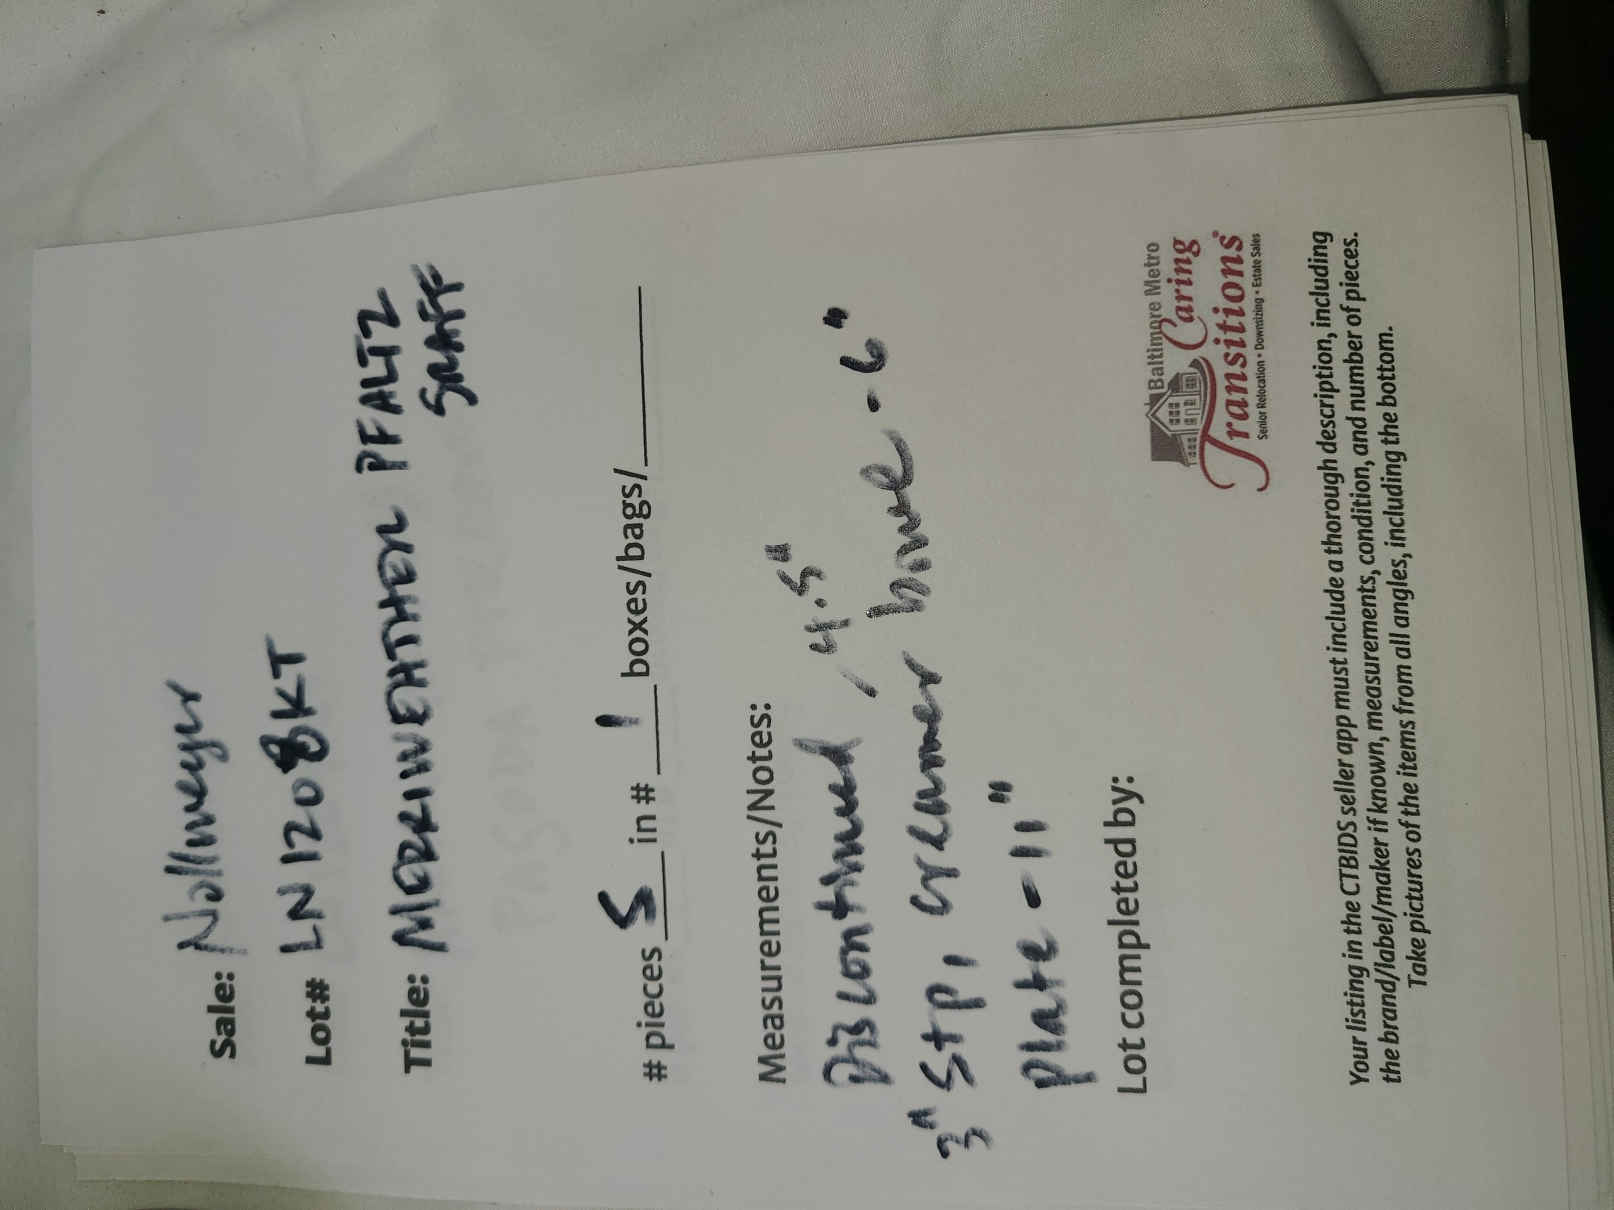 Sale: Nollmeyer
Lot# LN1208KT
Title: MERRIWEATHER PFALTZ
SRAFF
# pieces 5 in # 1 boxes/bags/
Measurements/Notes:
Discontinued, 4.5"
3" Stp, creamer bowl - 6"
plate - 11"
Lot completed by:
Baltimore Metro
Caring
Transitions
Senior Relocation • Downsizing • Estate Sales
Your listing in the CTBIDS seller app must include a thorough description, including
the brand/label/maker if known, measurements, condition, and number of pieces.
Take pictures of the items from all angles, including the bottom.